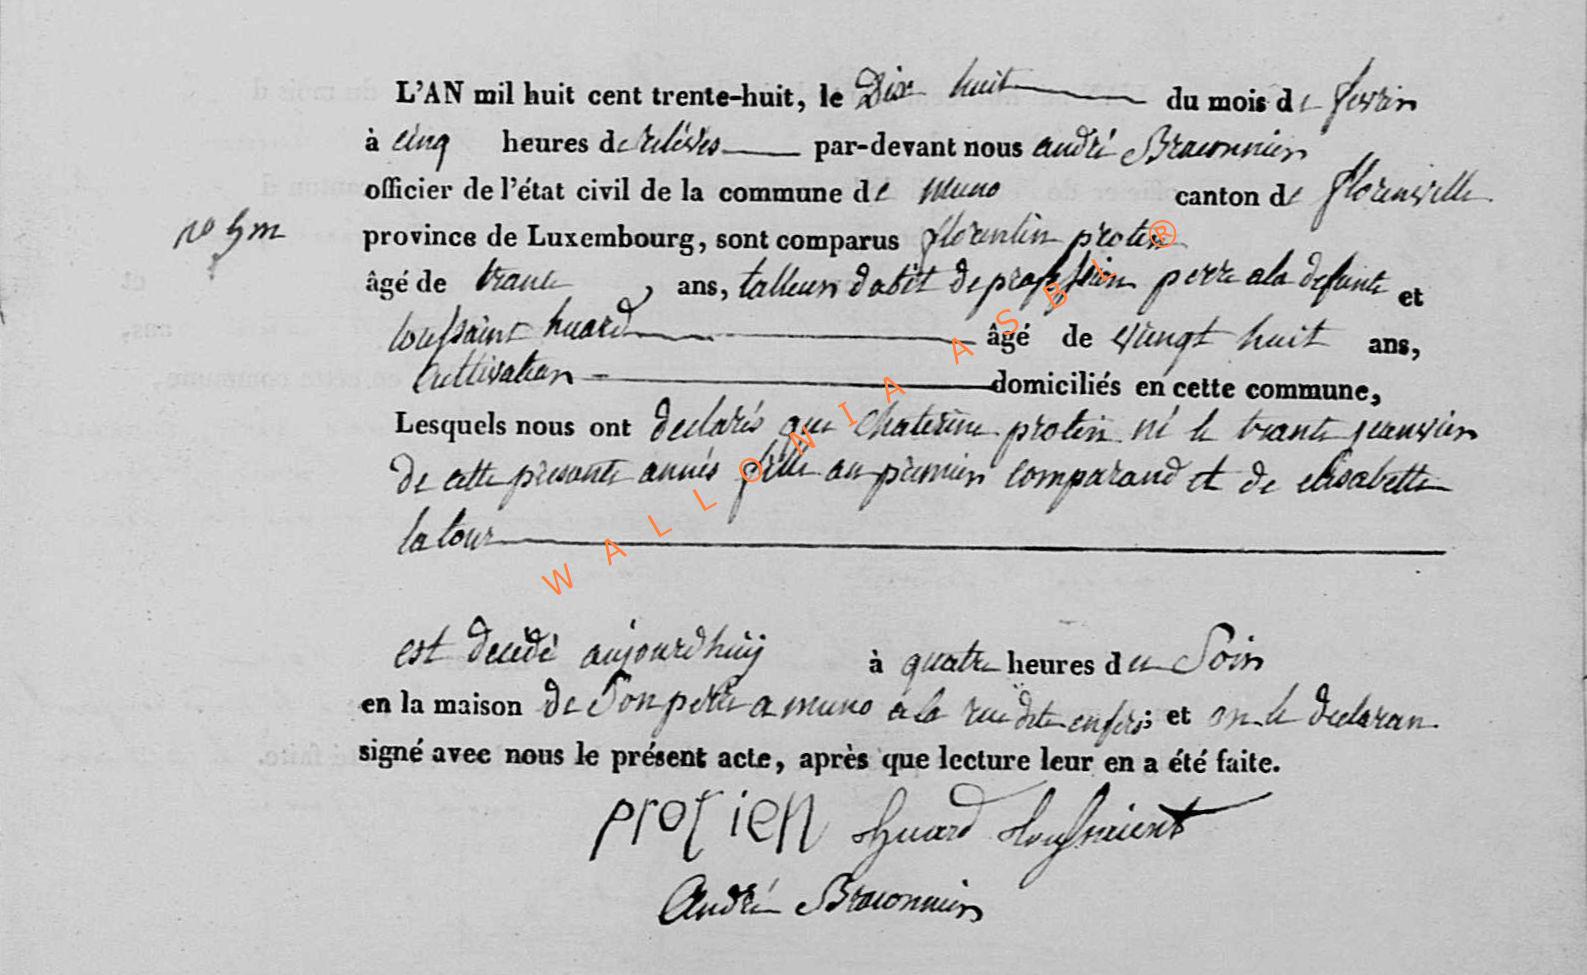 L'AN mil huit cent trente-huit, le Dix huit du mois de fevrir
à cinq heures de relévés par-devant nous andré Braconnier
officier de l'état civil de la commune de muno canton de florenville
province de Luxembourg, sont comparus florentin protin
âgé de trante ans, talleur dabit de profession perre a la defunte et
toussaint huard âgé de vingt huit ans,
Cultivateur domiciliés en cette commune,
Lesquels nous ont declarés que Chaterine protin né le trante jeanvier
de cette presante annés fille au premier comparand et de elisabette
latour
est decédé aujourdhuij à quatre heures du Soir
en la maison de Son perre a muno a la rue dite enfers; et on le declaran
signé avec nous le présent acte, après que lecture leur en a été faite.
protien huard toussaient
André Braconnier
WALLONIA ASBL ®